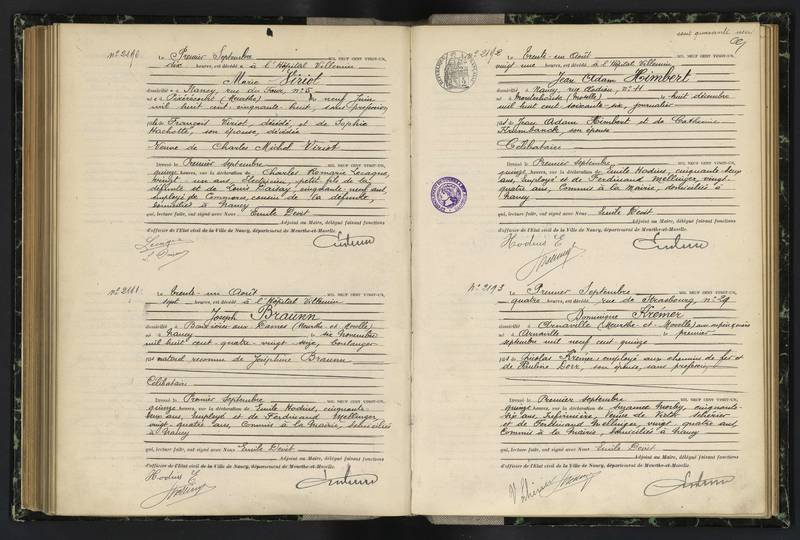 N° 2190.
Le Premier Septembre mil neuf cent vingt-un,
dix heures, est décédé à l'Hôpital Villemin
Marie Viriot
domicilié à Nancy, rue du Four, n° 5
né à (Meurthe) le neuf Juin
mil huit cent cinquante huit, sans profession
fille de François Viriot, décédé, et de Sophie
Hachotte, son épouse, décédée
Veuve de Charles Michel Viriot
Dressé le Premier Septembre mil neuf cent vingt-un,
quinze heures, sur la déclaration de Charles Romaric Lecagne,
vingt un ans, Électricien, petit fils de la
défunte et de Louis cinquante neuf ans,
employé de Commerce, cousin de la défunte,
domiciliés à Nancy
qui, lecture faite, ont signé avec Nous Emile
Adjoint au Maire, délégué faisant fonctions
d'officier de l'Etat civil de la Ville de Nancy, département de Meurthe-et-Moselle.
N° 2191.
Le trente-un Août mil neuf cent vingt-un,
sept heures, est décédé à l'Hôpital Villemin
Joseph Braunn
domicilié à aux Dames (Meurthe et Moselle)
né à Nancy le six Novembre
mil huit cent quatre vingt seize, boulanger
fils naturel reconnu de Joséphine Braunn
Célibataire
Dressé le Premier Septembre mil neuf cent vingt-un,
quinze heures, sur la déclaration de Emile Hodius, cinquante
deux ans, employé et de Ferdinand Mellinger
vingt-quatre ans, Commis à la Mairie, domiciliés
à Nancy
qui, lecture faite, ont signé avec Nous Emile
Adjoint au Maire, délégué faisant fonctions
d'officier de l'Etat civil de la Ville de Nancy, département de Meurthe-et-Moselle.
Hodius E
cent quarante un
N° 2192
Le trente-un Août mil neuf cent vingt-un,
vingt une heures, est décédé à l'Hôpital Villemin
Jean Adam Himbert
domicilié à Nancy, rue n° 11
né à (Moselle) le huit décembre
mil huit cent soixante six, journalier
fils de Jean Adam Himbert et de Catherine
son épouse
Célibataire
Dressé le Premier Septembre mil neuf cent vingt-un,
quinze heures, sur la déclaration de Emile Hodius, cinquante-deux
ans, employé et de Ferdinand Mellinger, vingt
quatre ans, Commis à la Mairie, domiciliés à
Nancy
qui, lecture faite, ont signé avec Nous Emile
Adjoint au Maire, délégué faisant fonctions
d'officier de l'Etat civil de la Ville de Nancy, département de Meurthe-et-Moselle.
Hodius E
N° 2193
Le Premier Septembre mil neuf cent vingt-un,
quatre heures, est décédé rue de Strasbourg, n° 29
Dominique Krémer
domicilié à Arnaville (Meurthe-et-Moselle)
né à Arnaville le premier
septembre mil neuf cent quinze
fils de Nicolas Krémer, employé aux chemins de fer et
de Pauline Dorr, son épouse, sans profession
Dressé le Premier septembre mil neuf cent vingt-un,
quinze heures, sur la déclaration de cinquante-
six ans, Infirmière, Veuve de
et de Ferdinand Mellinger, vingt quatre ans
Commis à la Mairie, domiciliés à Nancy
qui, lecture faite, ont signé avec Nous Emile
Adjoint au Maire, délégué faisant fonctions
d'officier de l'Etat civil de la Ville de Nancy, département de Meurthe-et-Moselle.